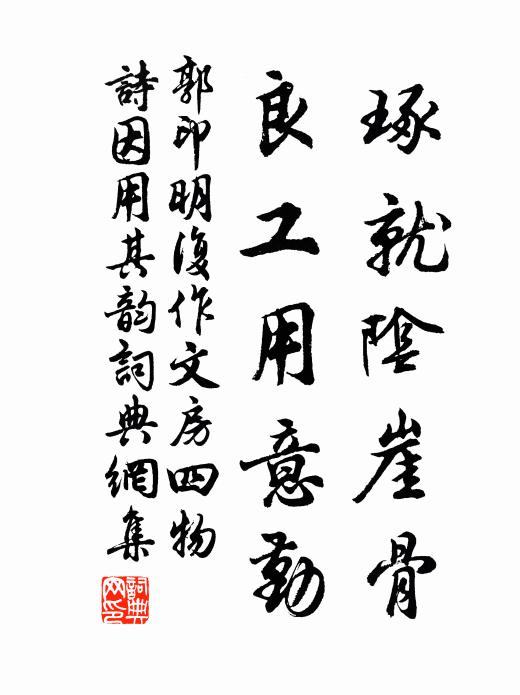 琢就陰崖骨
良工用意勤
郭印明復作文房四物
詩因用其韵詞典網集
詞典網印